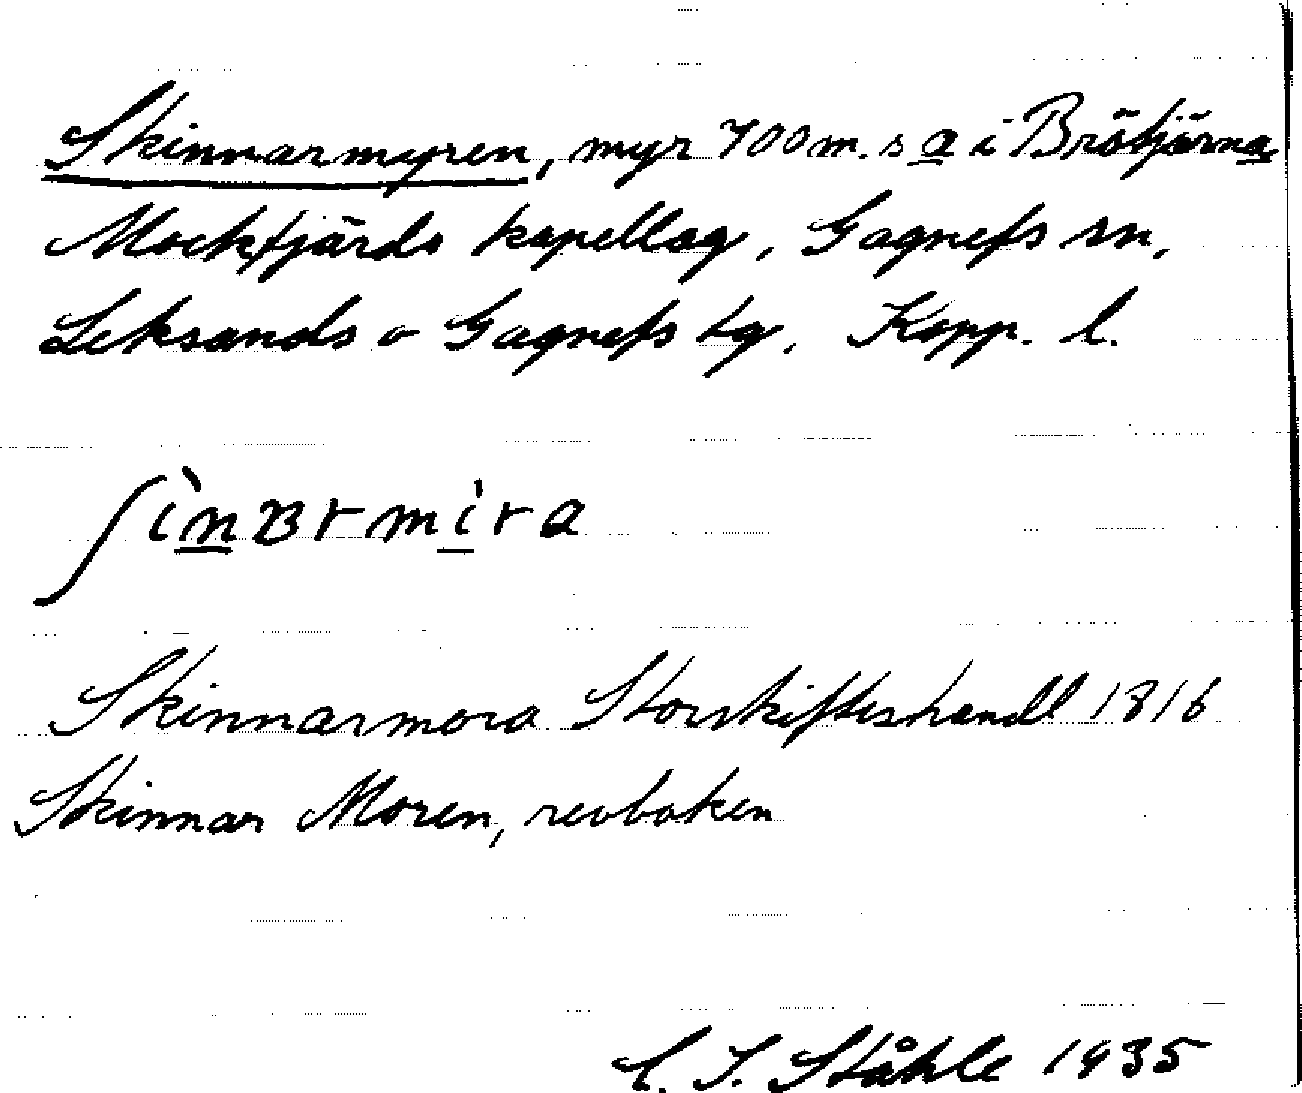 Skinnarmyren, myr 700 m. s a i Brötjärna
Mockfjärds kapellag, Gagnefs sn,
Leksands o Gagnefs tg, Kopp. l.
ʃìnBrmìra
Skinnarmora Storskifteshandl 1816
Skinnar Moren, revboken
C. I. Ståhle 1935